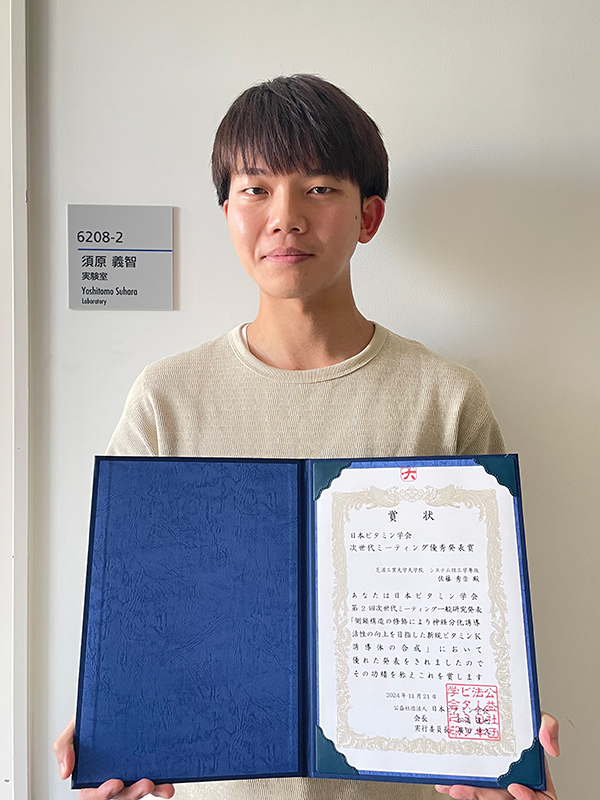 6208-2
須原 義智
実験室
Yoshitomo Suhara
Laboratory
賞 状
日本ビタミン学会
次世代ミーティング優秀発表賞
芝浦工業大学大学院 システム理工学専攻
佐藤 秀 殿
あなたは日本ビタミン学会
第2回次世代ミーティング一般研究発表
「側鎖構造の修飾により神経分化誘導
活性の向上を目指した新規ビタミンK
誘導体の合成」において
優れた発表をされましたので
その功績を称えこれを賞します
2024年11月21日
公益社団法人 日本ビタミン学会
会長
実行委員長